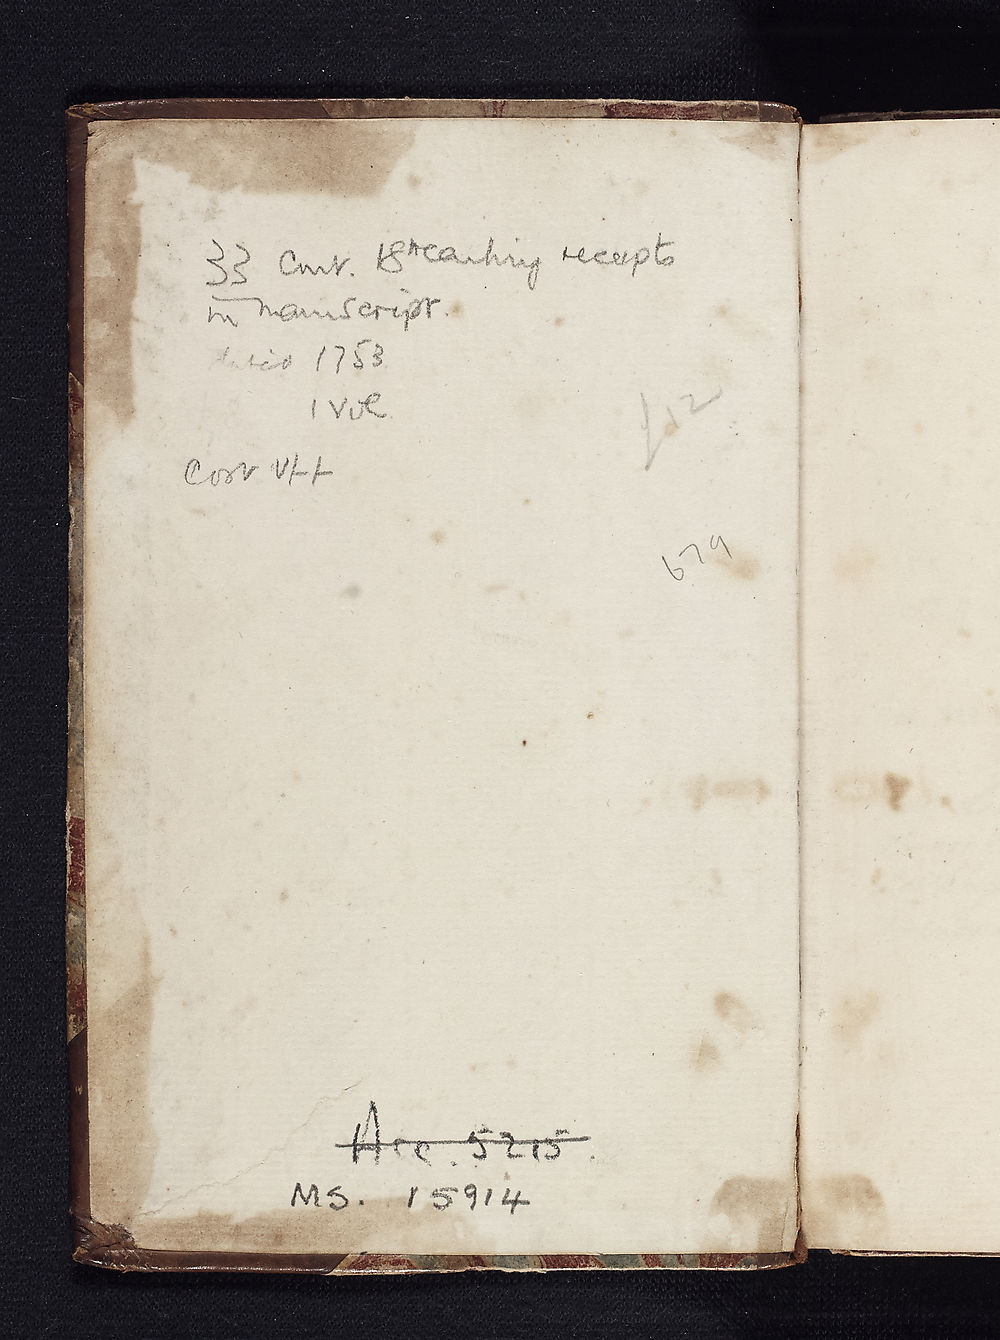 33 Cont. 18th cent. cooking receipts
in manuscript.
dated 1753
1 vol
£12
679
Acc. 5215.
MS. 15914